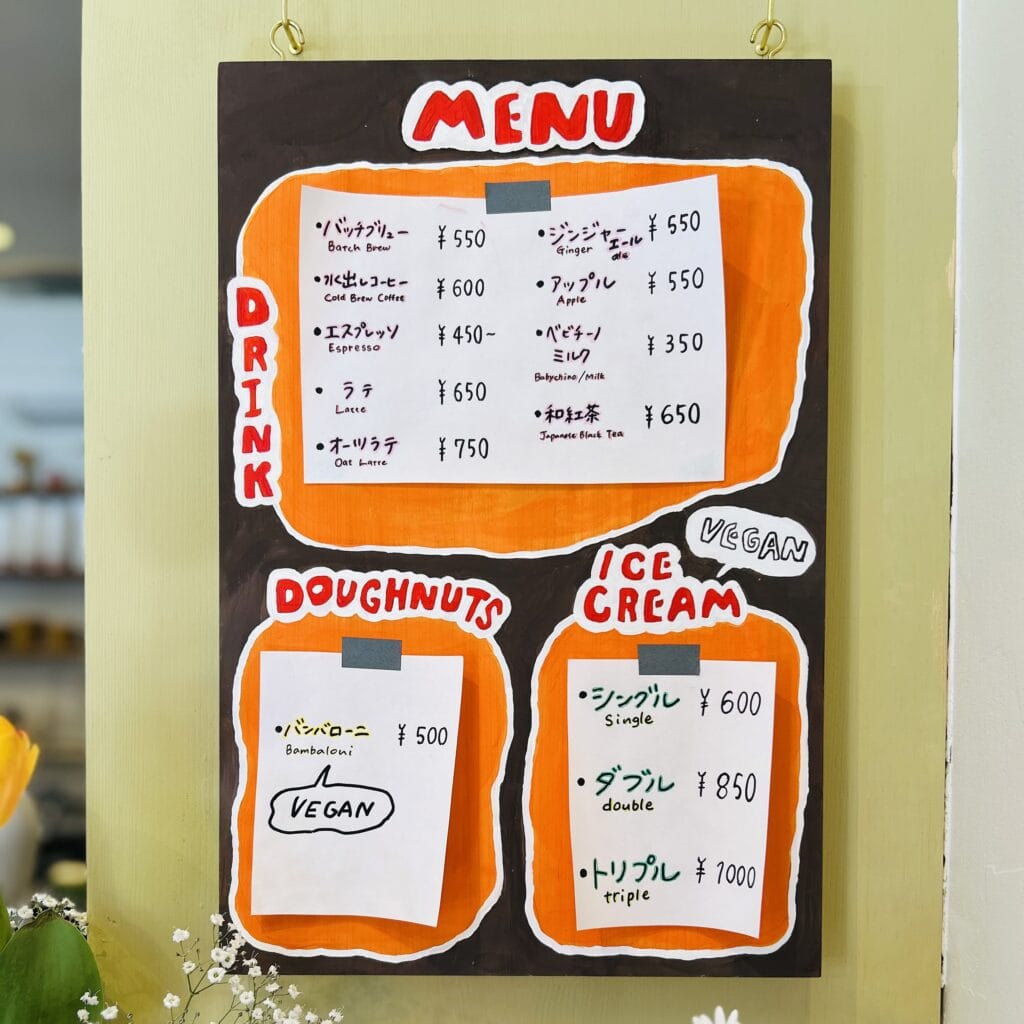 MENU
DRINK
•バッチブリュー ¥550
Batch Brew
•水出しコーヒー ¥600
Cold Brew Coffee
•エスプレッソ ¥450~
Espresso
•ラテ ¥650
Latte
•オーツラテ ¥750
Oat Latte
•ジンジャーエール ¥550
Ginger ale
•アップル ¥550
Apple
•ベビチーノ
ミルク ¥350
Babychino/Milk
•和紅茶 ¥650
Japanese Black Tea
DOUGHNUTS
•バンバローニ ¥500
Bambaloni
VEGAN
VEGAN
ICE
CREAM
•シングル ¥600
single
•ダブル ¥850
double
•トリプル ¥1000
triple